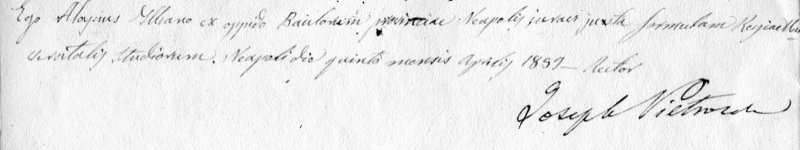 Ego Aloysius Albano ex oppido Baulorum provinciae Neapolis juravi juxta formulam Regiae Uni
versitatis Studiorum. Neapoli die quinto mensis Aprilis 1839 — Rector
Joseph